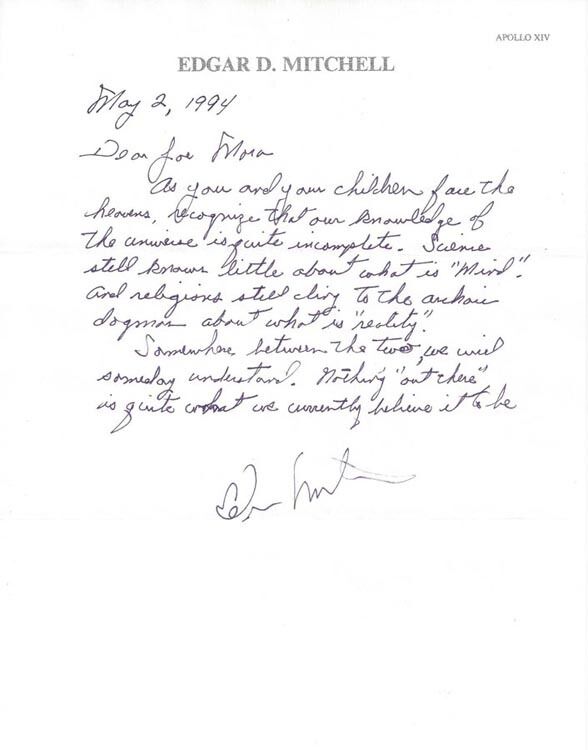 APOLLO XIV
EDGAR D. MITCHELL
May 2, 1994
Dear Joe Mora
As you and your children face the
heavens, recognize that our knowledge of
the universe is quite incomplete. Science
still knows little about what is "Mind".
And religions still cling to the archaic
dogmas about what is "reality".
Somewhere between the two, we will
someday understand. Nothing "out there"
is quite what we currently believe it to be
Edgar Mitchell